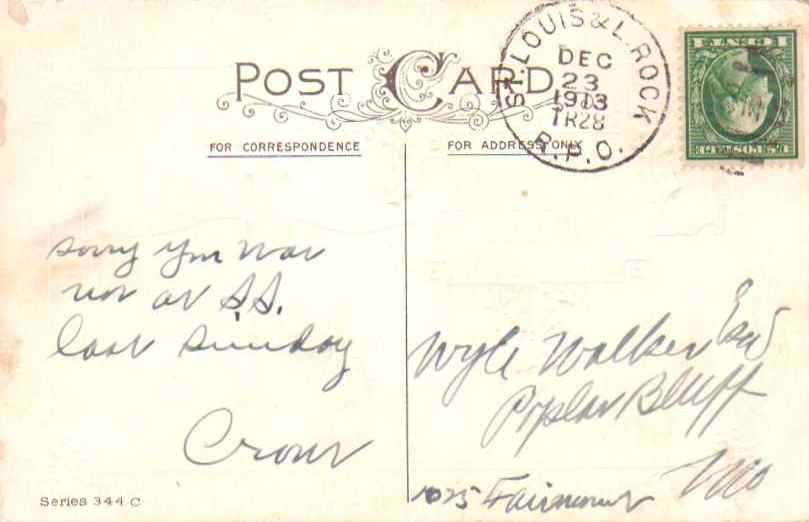 POST CARD
ST. LOUIS & L. ROCK
DEC
23
1913
TR28
R.P.O.
FOR CORRESPONDENCE
FOR ADDRESS ONLY
sorry you was
not at S.S.
last Sunday
Wyle Walker Esq
Poplar Bluff
Mo
1025 Fairmount
Series 344 C